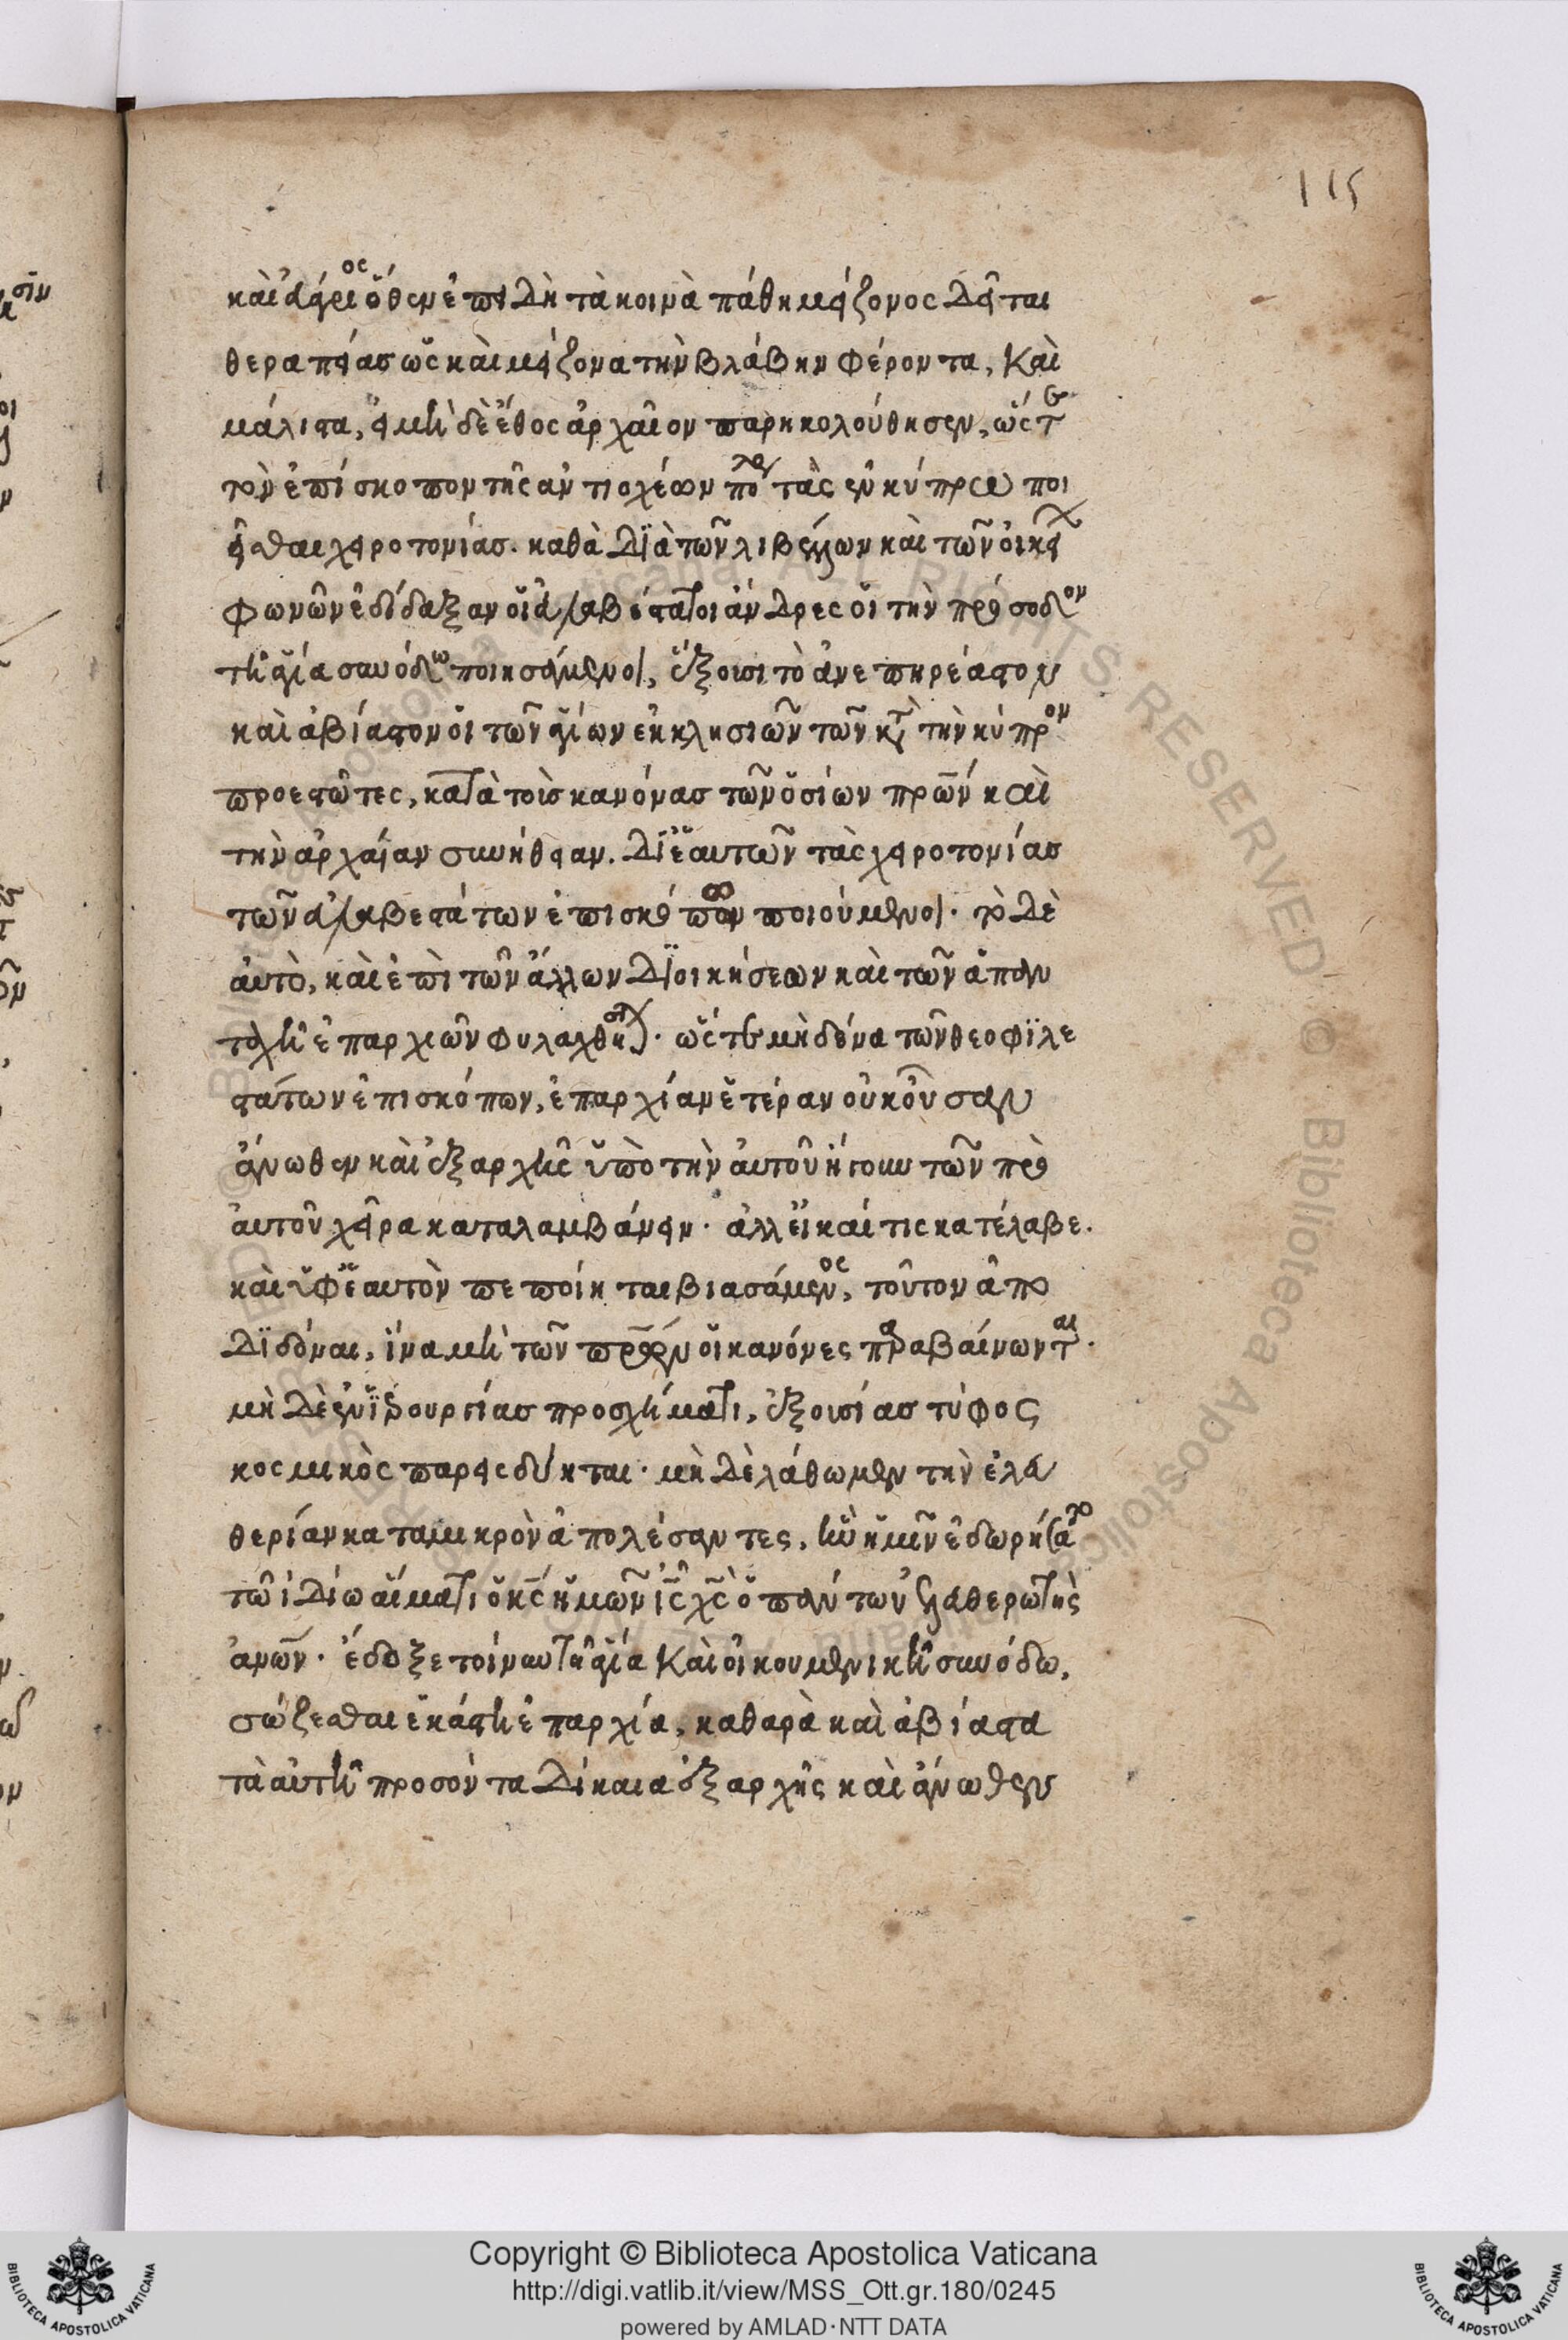 115
καὶ Εὐάγριος ὅθεν ἐπειδὴ τὰ κοινὰ πάθη μείζονος δεῖται
θεραπείας ὡς καὶ μείζονα τὴν βλάβην φέροντα, καὶ
μάλιστα, εἰ μὴ δὲ ἔθος ἀρχαῖον παρηκολούθησεν, ὥστε
τὸν ἐπίσκοπον τῆς ἀντιοχέων πόλεως τὰς ἐν κύπρω ποι
εῖσθαι χειροτονίας. καθὰ διὰ τῶν λιβέλλων καὶ τῶν οἰκείων
φωνῶν ἐδίδαξαν οἱ εὐλαβέστατοι ἄνδρες οἱ τὴν πρόσοδον
τῆ ἁγία συνόδω ποιησάμενοι, ἕξουσι τὸ ἀνεπηρέαστον
καὶ ἀβίαστον οἱ τῶν ἁγίων ἐκκλησιῶν τῶν κατὰ τὴν κύπρον
προεστῶτες, κατὰ τοὺς κανόνας τῶν ὁσίων πρων καὶ
τὴν ἀρχαίαν συνήθειαν. δι' ἑαυτῶν τὰς χειροτονίας
τῶν εὐλαβεστάτων ἐπισκόπων ποιούμενοι. τὸ δὲ
αὐτὸ, καὶ ἐπὶ τῶν ἄλλων διοικήσεων καὶ τῶν ἁπαν
ταχῆ ἐπαρχιῶν φυλαχθήσεται. ὥστε μηδένα τῶν θεοφιλε
στάτων ἐπισκόπων, ἐπαρχίαν ἑτέραν οὐκ οὖσαν
ἄνωθεν καὶ ἐξαρχῆς ὑπὸ τὴν αὐτοῦ ἤγουν τῶν πρὸ
αὐτοῦ χεῖρα καταλαμβάνειν. ἀλλ' εἰ καί τις κατέλαβε.
καὶ ὑφ' ἑαυτὸν πεποίηται βιασάμενος, τοῦτον ἀπο
διδόναι, ἵνα μὴ τῶν πρων οἱ κανόνες παραβαίνωνται.
μηδὲ ἐν ἱερουργίας προσχήματι, ἐξουσίας τύφος
κοσμικὸς παρεισδύηται. μηδὲ λάθωμεν τὴν ἐλευ
θερίαν καταμικρὸν ἀπολέσαντες, ἣν ἡμῖν ἐδωρήσατο
τῶ ἰδίω αἵματι ὁ κς ἡμῶν ις χς ὁ πάντων ἐλευθερωτὴς
ανων. ἔδοξε τοίνυν τῆ ἁγία καὶ οἰκουμενικῆ συνόδω,
σώζεσθαι ἑκάστη ἐπαρχία, καθαρὰ καὶ ἀβίαστα
τὰ αὐτῆ προσόντα δίκαια ἐξαρχῆς καὶ ἄνωθεν
Copyright © Biblioteca Apostolica Vaticana
http://digi.vatlib.it/view/MSS_Ott.gr.180/0245
powered by AMLAD·NTT DATA